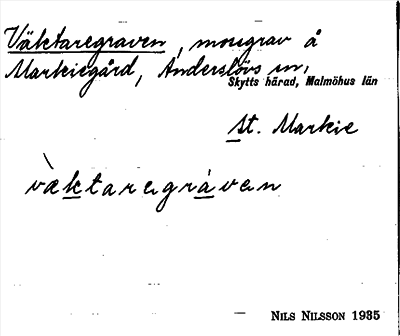 Väktaregraven, mosgrav å
Markiegård, Anderslövs sn,
Skytts härad, Malmöhus län
St. Markie
væktaregráven
NILS NILSSON 1935